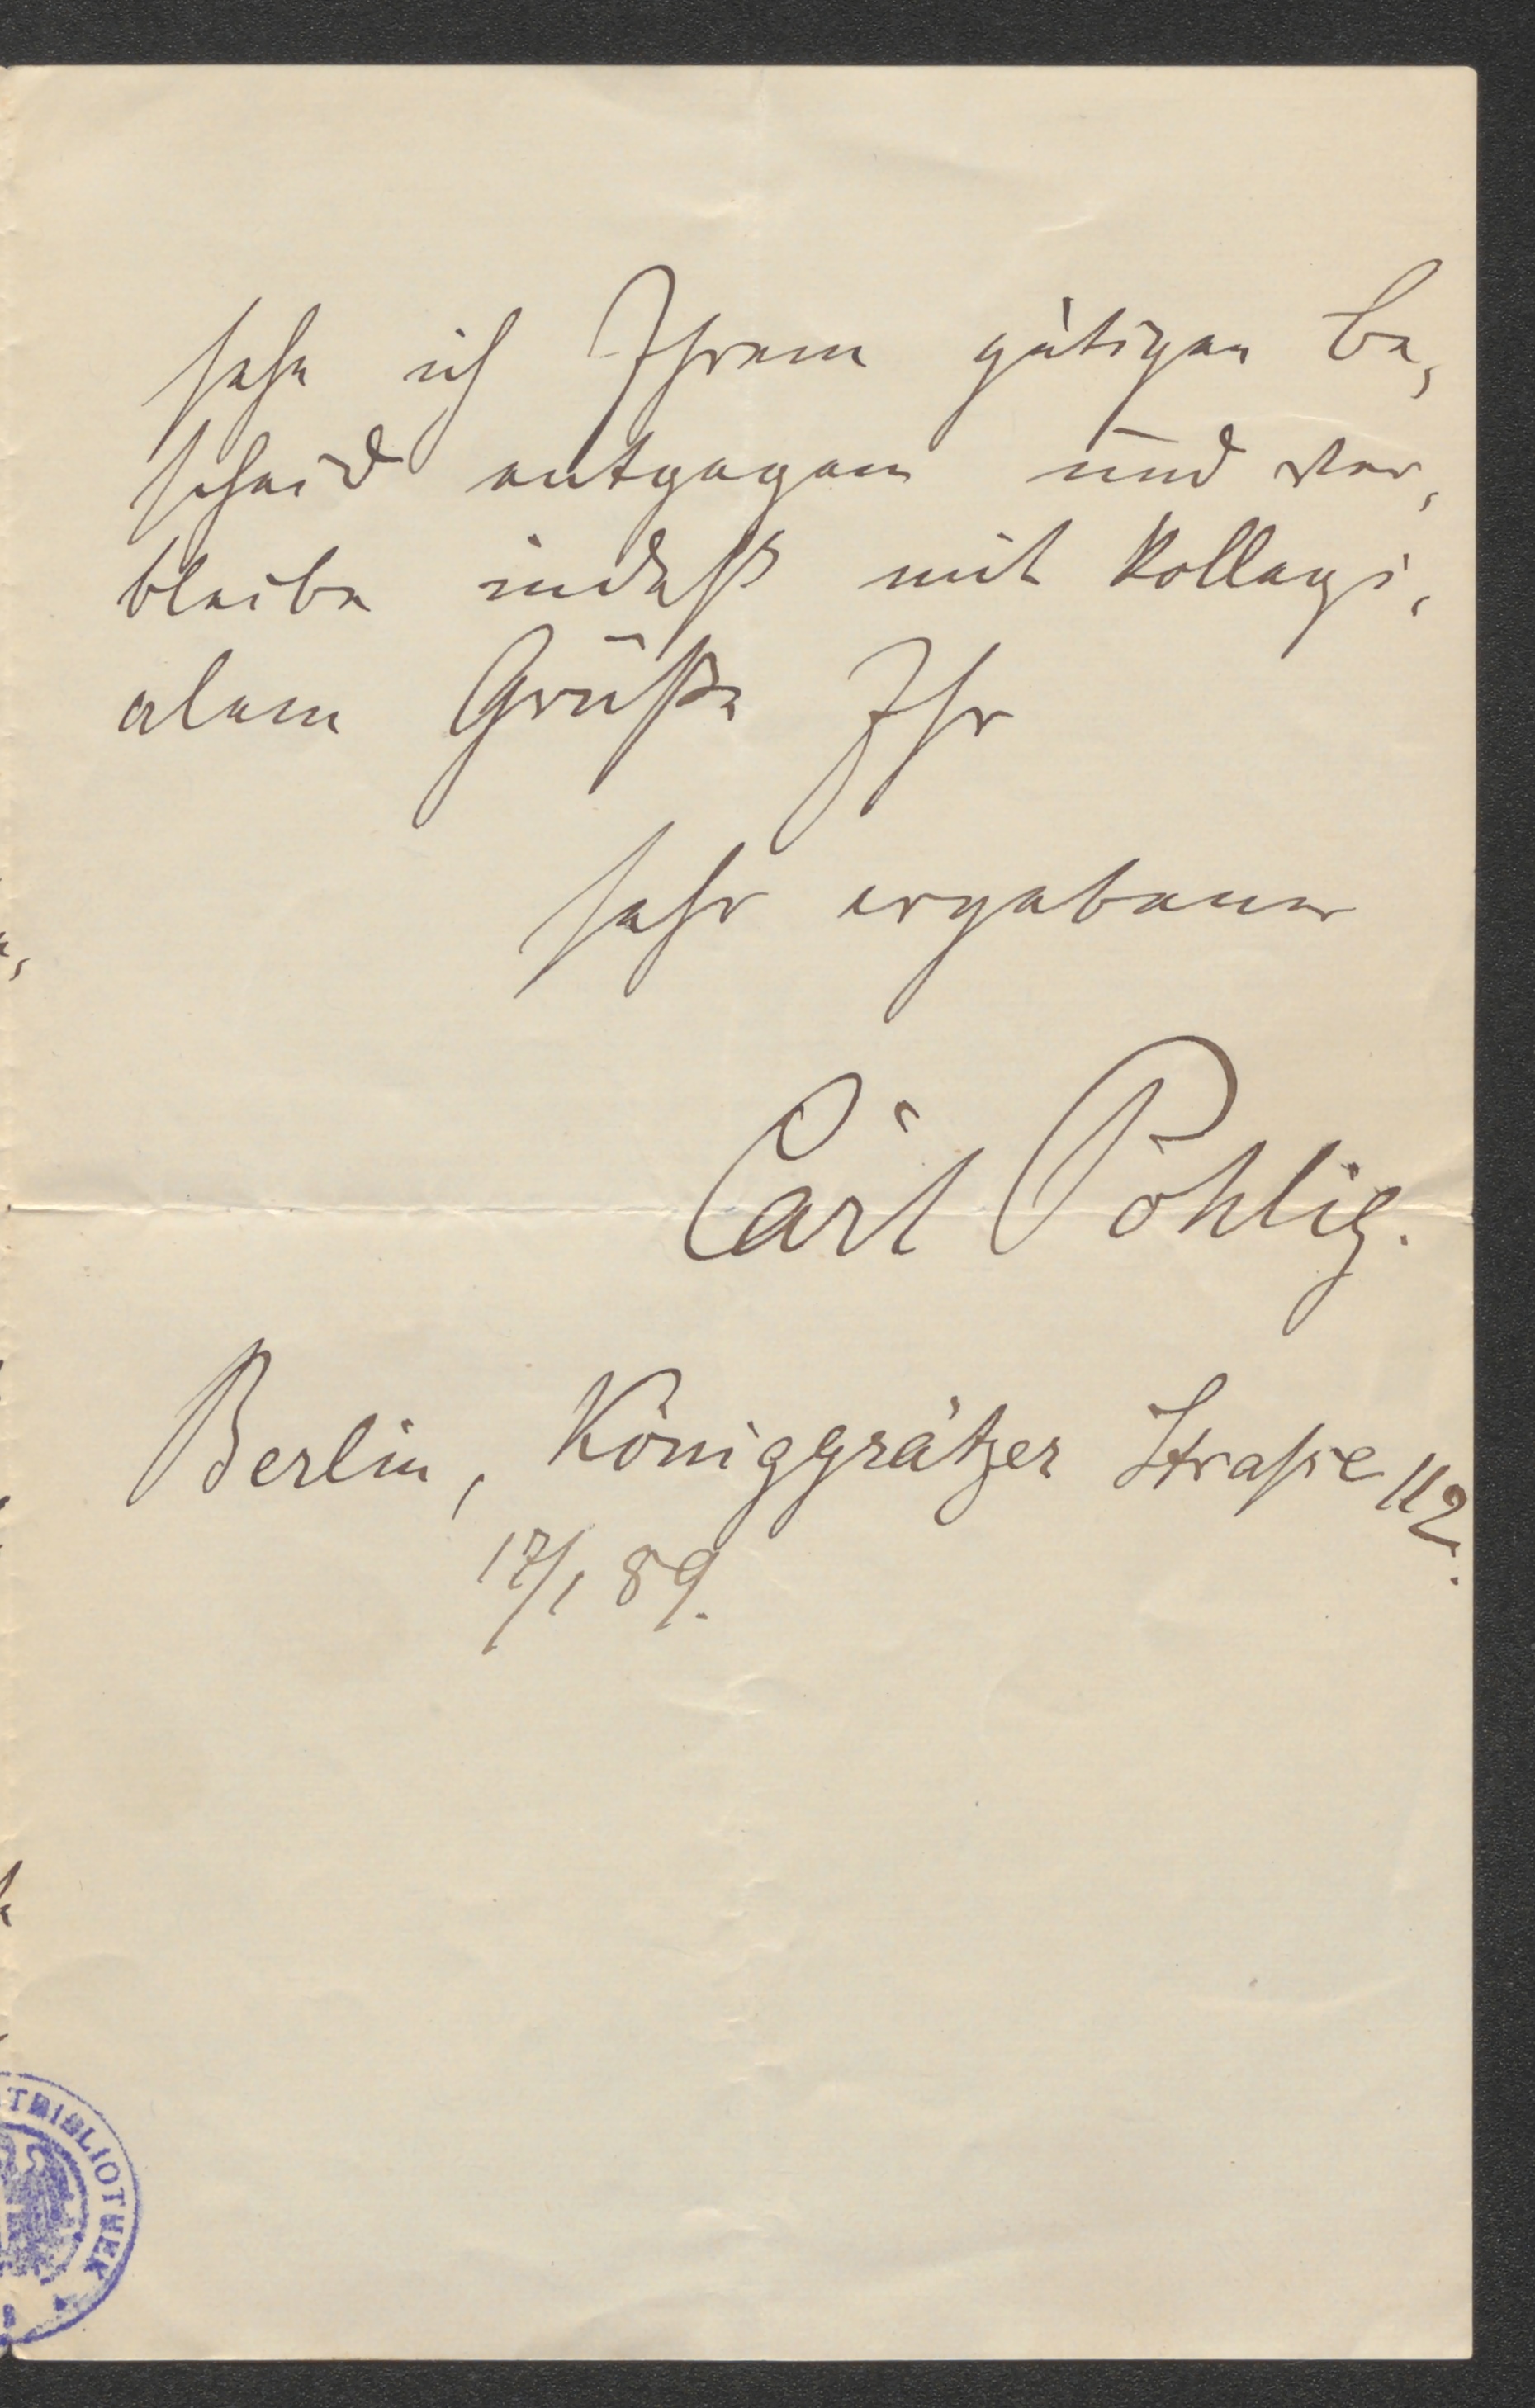 sehe ich Ihrem gütigen Be,
scheid entgegen und ver,
bleibe indeß mit kollegi,
alem Gruße Ihr
sehr ergebener
Carl Pohlig.
Berlin, Königgrätzer Straße 112.
17/1 89.
TBIBLIOTHEK